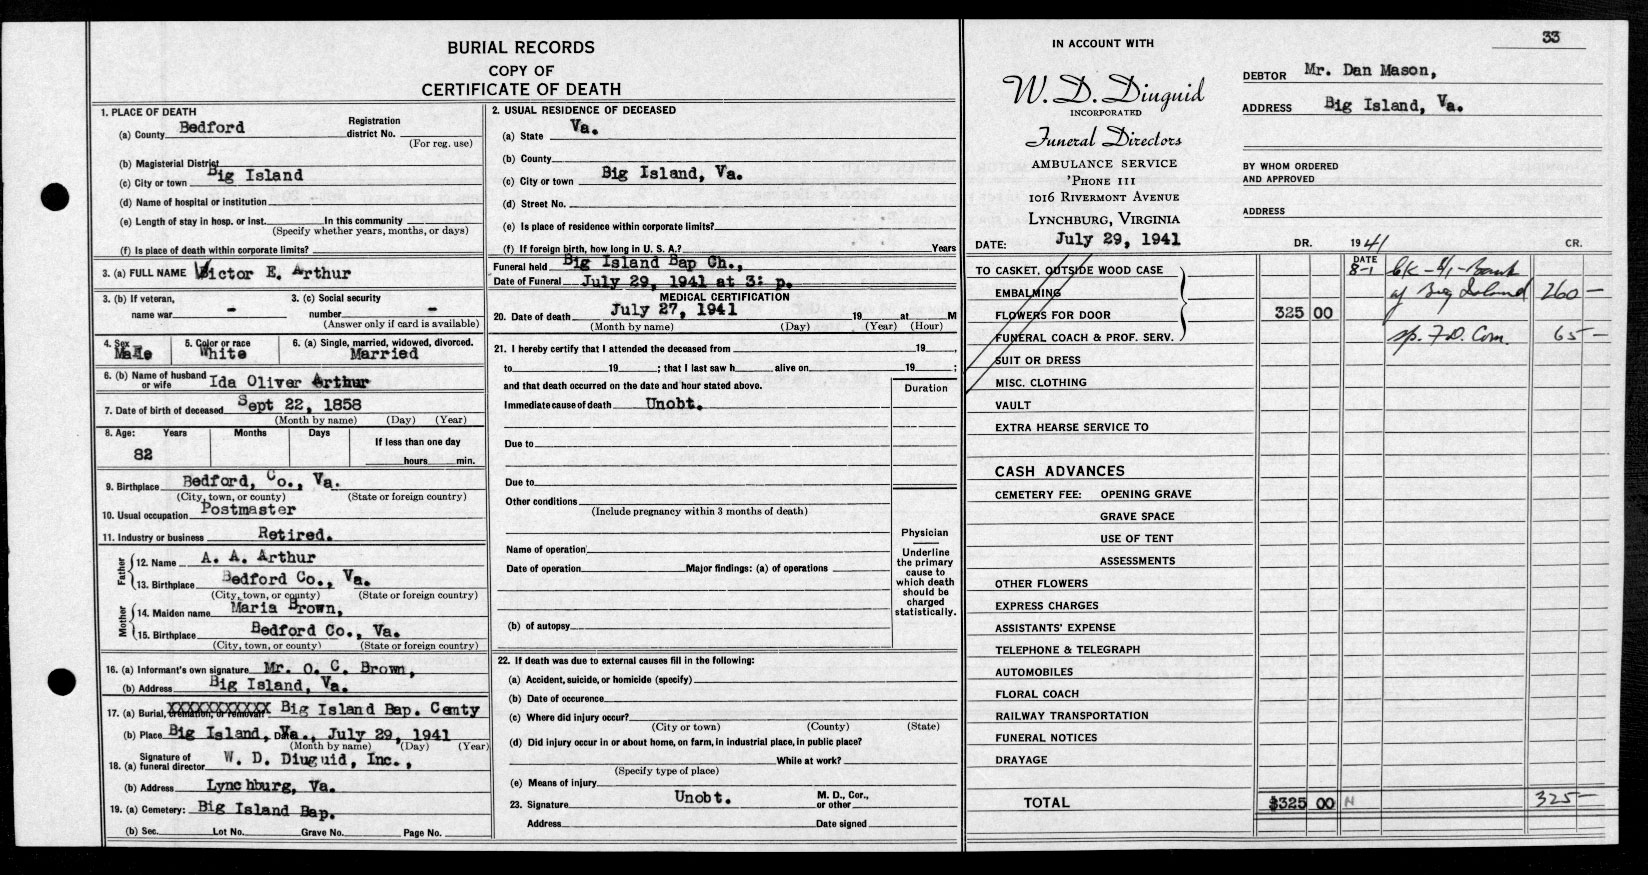 33
BURIAL RECORDS
COPY OF
CERTIFICATE OF DEATH
1. PLACE OF DEATH
(a) County Bedford Registration district No.
(For reg. use)
(b) Magisterial District
(c) City or town Big Island
(d) Name of hospital or institution
(e) Length of stay in hosp. or inst. In this community
(Specify whether years, months, or days)
(f) Is place of death within corporate limits?
3. (a) FULL NAME Victor E. Arthur
3. (b) If veteran, name war - 3. (c) Social security number -
(Answer only if card is available)
4. Sex Male 5. Color or race White 6. (a) Single, married, widowed, divorced. Married
6. (b) Name of husband or wife Ida Oliver Arthur
7. Date of birth of deceased Sept 22, 1858
(Month by name) (Day) (Year)
8. Age: Years Months Days If less than one day
82 hours min.
9. Birthplace Bedford, Co., Va.
(City, town, or county) (State or foreign country)
10. Usual occupation Postmaster
11. Industry or business Retired.
Father
12. Name A. A. Arthur
13. Birthplace Bedford Co., Va.
(City, town, or county) (State or foreign country)
Mother
14. Maiden name Maria Brown,
15. Birthplace Bedford Co., Va.
(City, town, or county) (State or foreign country)
16. (a) Informant's own signature Mr. O. C. Brown,
(b) Address Big Island, Va.
17. (a) Burial, cremation, or removal? XXXXXXXXXXXX Big Island Bap. Cemty
(b) Place Big Island, Va., July 29, 1941
(Month by name) (Day) (Year)
18. (a) Signature of funeral director W. D. Diuguid, Inc.,
(b) Address Lynchburg, Va.
19. (a) Cemetery: Big Island Bap.
(b) Sec. Lot No. Grave No. Page No.
2. USUAL RESIDENCE OF DECEASED
(a) State Va.
(b) County
(c) City or town Big Island, Va.
(d) Street No.
(e) Is place of residence within corporate limits?
(f) If foreign birth, how long in U. S. A.? Years
Funeral held Big Island Bap Ch.,
Date of Funeral July 29, 1941 at 3: p.
MEDICAL CERTIFICATION
20. Date of death July 27, 1941 19 at M
(Month by name) (Day) (Year) (Hour)
21. I hereby certify that I attended the deceased from 19 ,
to 19 ; that I last saw h alive on 19 ;
and that death occurred on the date and hour stated above. Duration
Immediate cause of death Unobt.
Due to
Due to
Other conditions
(Include pregnancy within 3 months of death)
Name of operation
Date of operation Major findings: (a) of operations
(b) of autopsy
Physician
Underline
the primary
cause to
which death
should be
charged
statistically.
22. If death was due to external causes fill in the following:
(a) Accident, suicide, or homicide (specify)
(b) Date of occurence
(c) Where did injury occur?
(City or town) (County) (State)
(d) Did injury occur in or about home, on farm, in industrial place, in public place?
While at work?
(Specify type of place)
(e) Means of injury
23. Signature Unobt. M. D., Cor., or other
Address Date signed
IN ACCOUNT WITH
W. D. Diuguid
INCORPORATED
Funeral Directors
AMBULANCE SERVICE
'PHONE 111
1016 RIVERMONT AVENUE
LYNCHBURG, VIRGINIA
DEBTOR Mr. Dan Mason,
ADDRESS Big Island, Va.
BY WHOM ORDERED
AND APPROVED
ADDRESS
DATE: July 29, 1941 DR. 1941 CR.
DATE
TO CASKET, OUTSIDE WOOD CASE 8-1
EMBALMING of Big Island 260 —
FLOWERS FOR DOOR 325 00
FUNERAL COACH & PROF. SERV. 65 —
SUIT OR DRESS
MISC. CLOTHING
VAULT
EXTRA HEARSE SERVICE TO
CASH ADVANCES
CEMETERY FEE: OPENING GRAVE
GRAVE SPACE
USE OF TENT
ASSESSMENTS
OTHER FLOWERS
EXPRESS CHARGES
ASSISTANTS' EXPENSE
TELEPHONE & TELEGRAPH
AUTOMOBILES
FLORAL COACH
RAILWAY TRANSPORTATION
FUNERAL NOTICES
DRAYAGE
TOTAL $325 00 N 325 —